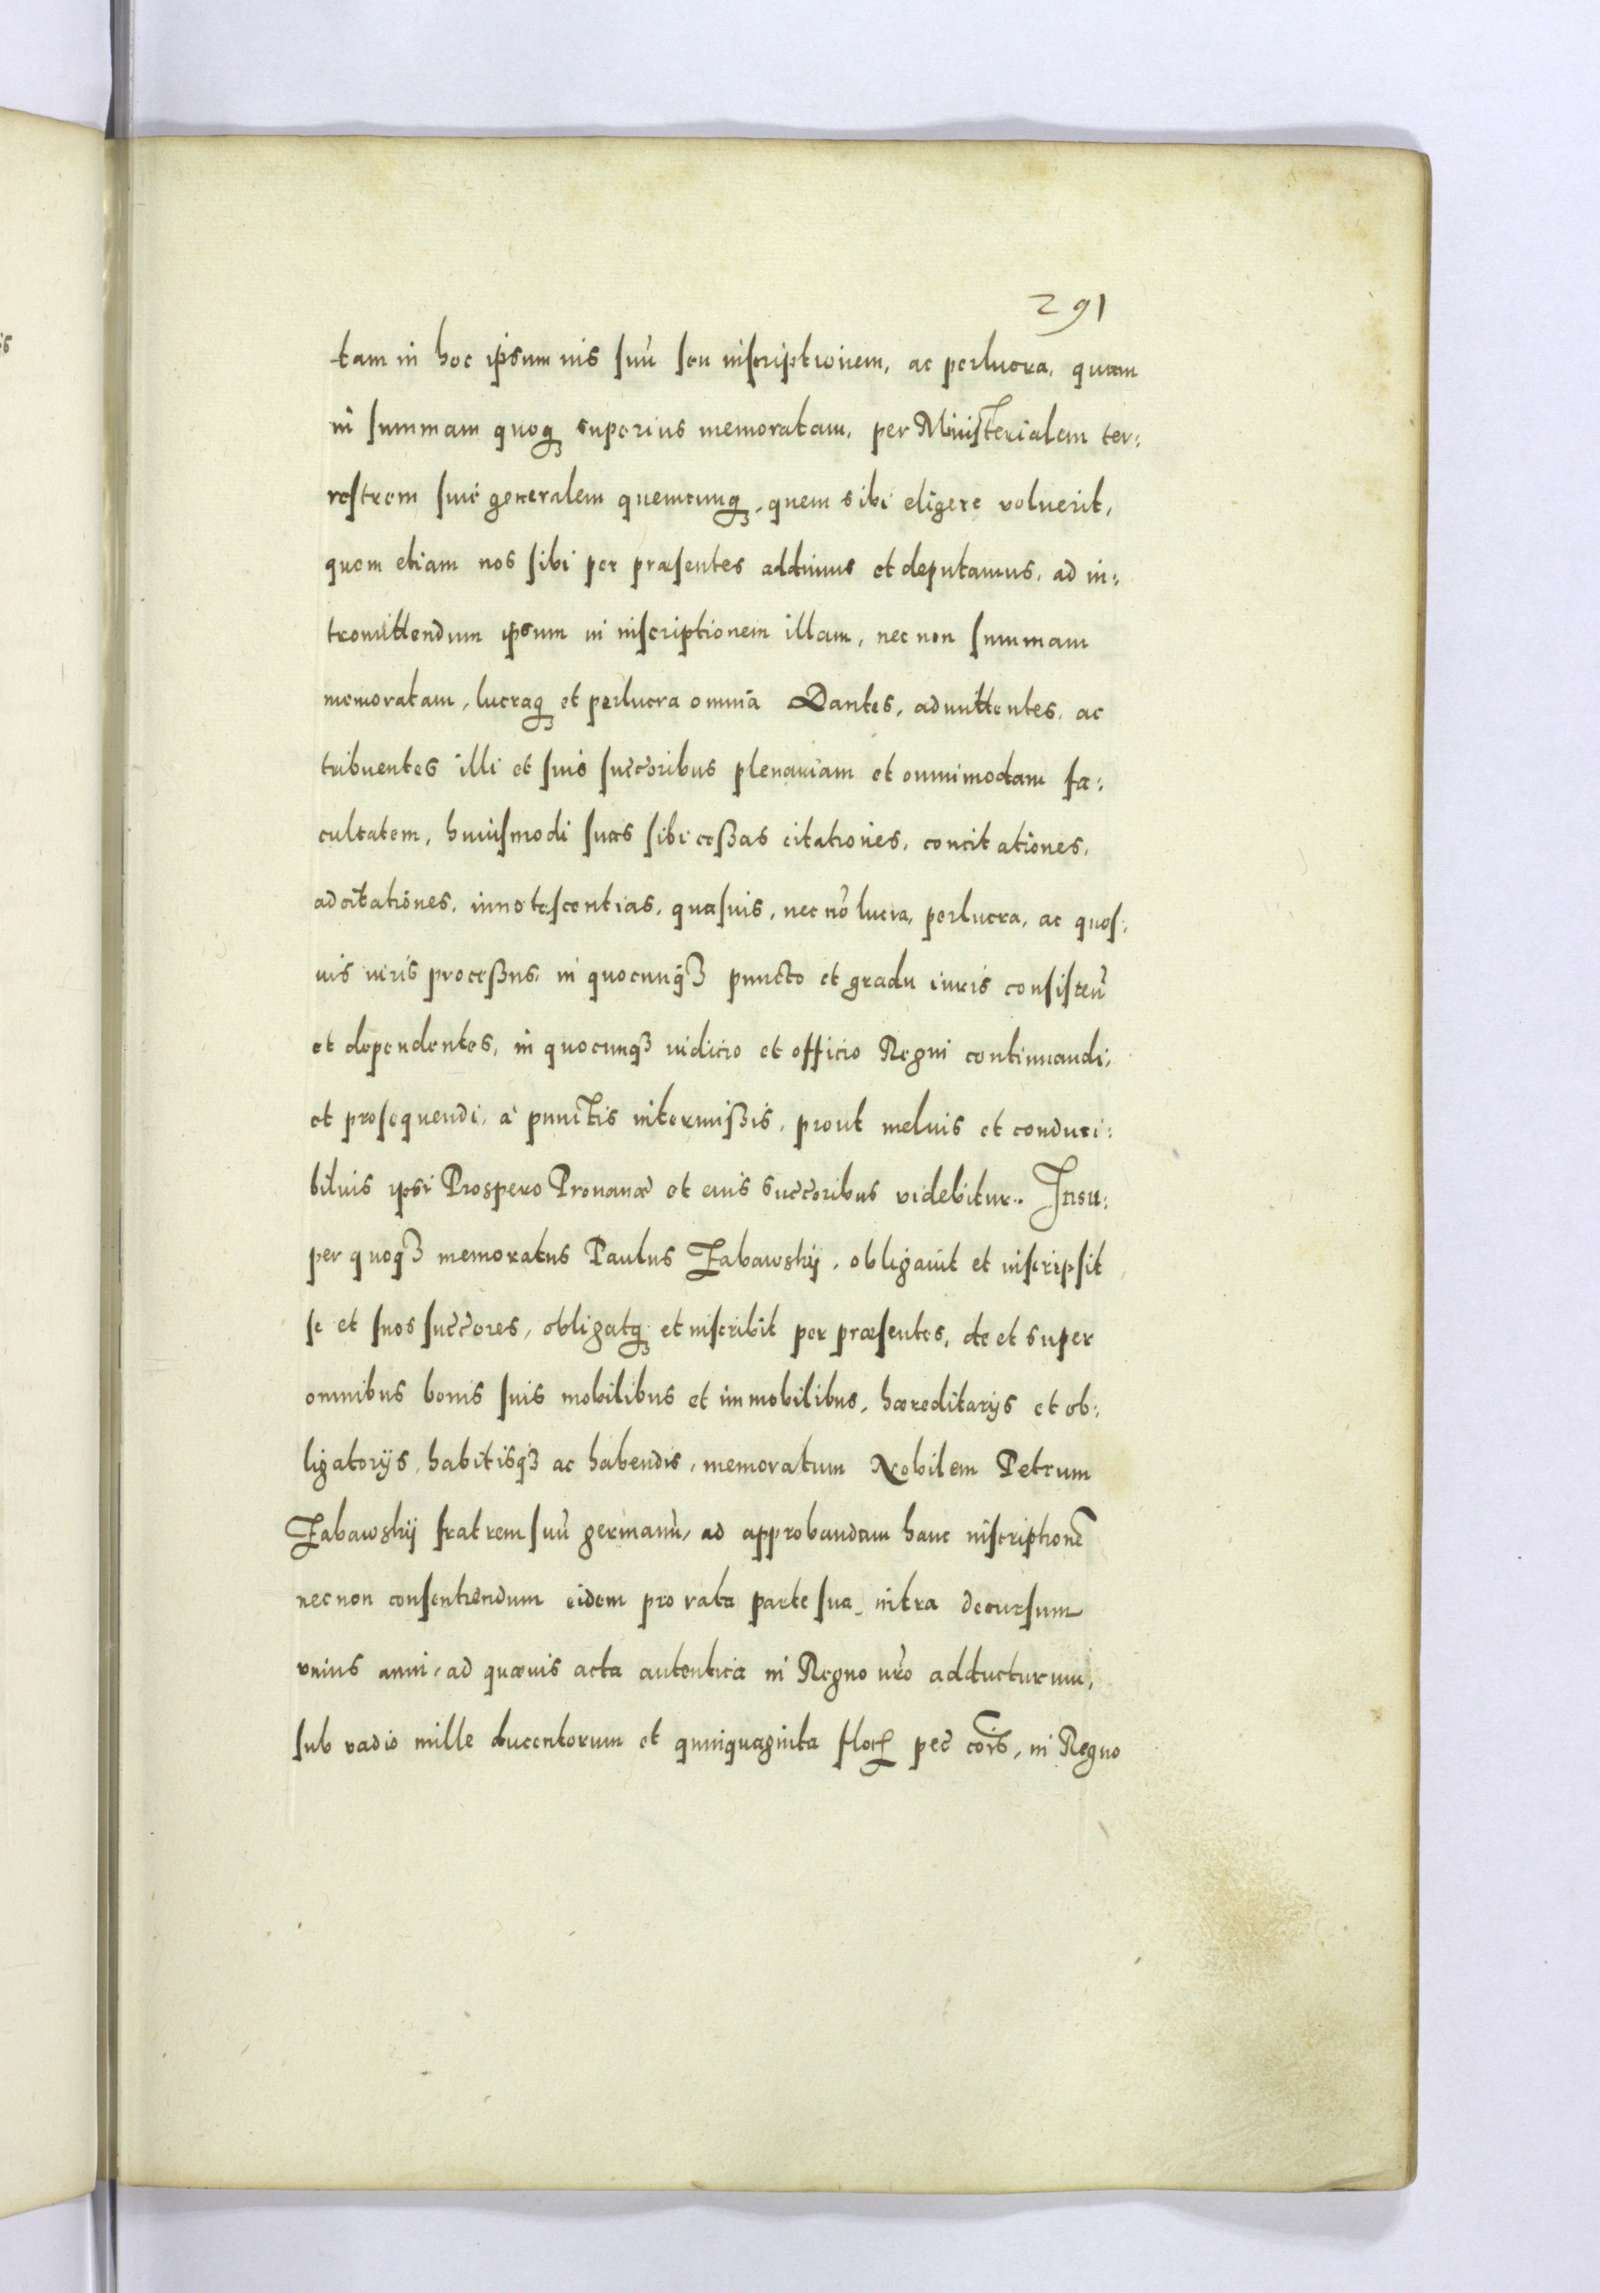 291
tam in hoc ipsum ius suū seu inscriptionem, ac perlucra, quam
in summam quoqʒ superius memoratam, per Ministerialem ter:
restrem siue generalem quemcunqʒ, quem sibi eligere voluerit,
quem etiam nos sibi per præsentes addimus et deputamus, ad in:
tromittendum ipsum in inscriptionem illam, nec non summam
memoratam, lucraqʒ et perlucra omnia Dantes, admittentes, ac
tribuentes illi et suis succoribus plenariam et omnimodam fa:
cultatem, huiusmodi suas sibi ceßas citationes, concitationes,
adcitationes, innotescentias, quasuis, nec nō lucra, perlucra, ac quos:
uis iuris proceßus, in quocunqʒ puncto et gradu iuris consisteñ
et dependentes, in quocunqʒ iudicio et officio Regni continuandi,
et prosequendi, à punctis intermißis, prout melius et conduci:
bilius ipsi Prospero Prouanæ et eius succoribus videbitur. Insu:
per quoqʒ memoratus Paulus Zabawskij, obligauit et inscripsit
se et suos succores, obligatqʒ et inscribit per præsentes, de et super
omnibus bonis suis mobilibus et immobilibus, hæreditarijs et ob:
ligatorijs, habitisqʒ ac habendis, memoratum Nobilem Petrum
Zabawskij fratrem suū germanū, ad approbandam hanc inscriptionē
nec non consentiendum eidem pro rata parte sua, intra decursum
vnius anni, ad quæuis acta autentica in Regno nrō adducturum,
sub vadio mille ducentorum et quinquaginta floꝝ pec̄ cōis, in Regno